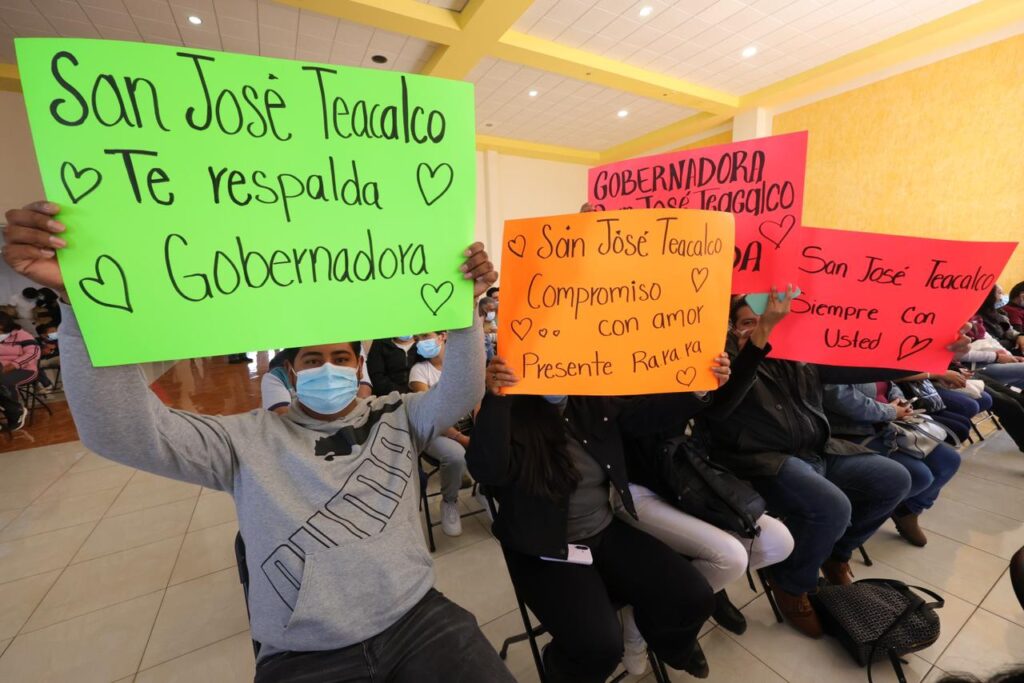 San José Teacalco
Te respalda
Gobernadora
San José Teacalco
Compromiso
con amor
Presente Ra ra ra
GOBERNADORA
San José Teacalco
San José Teacalco
Siempre Con
Usted
PUMA